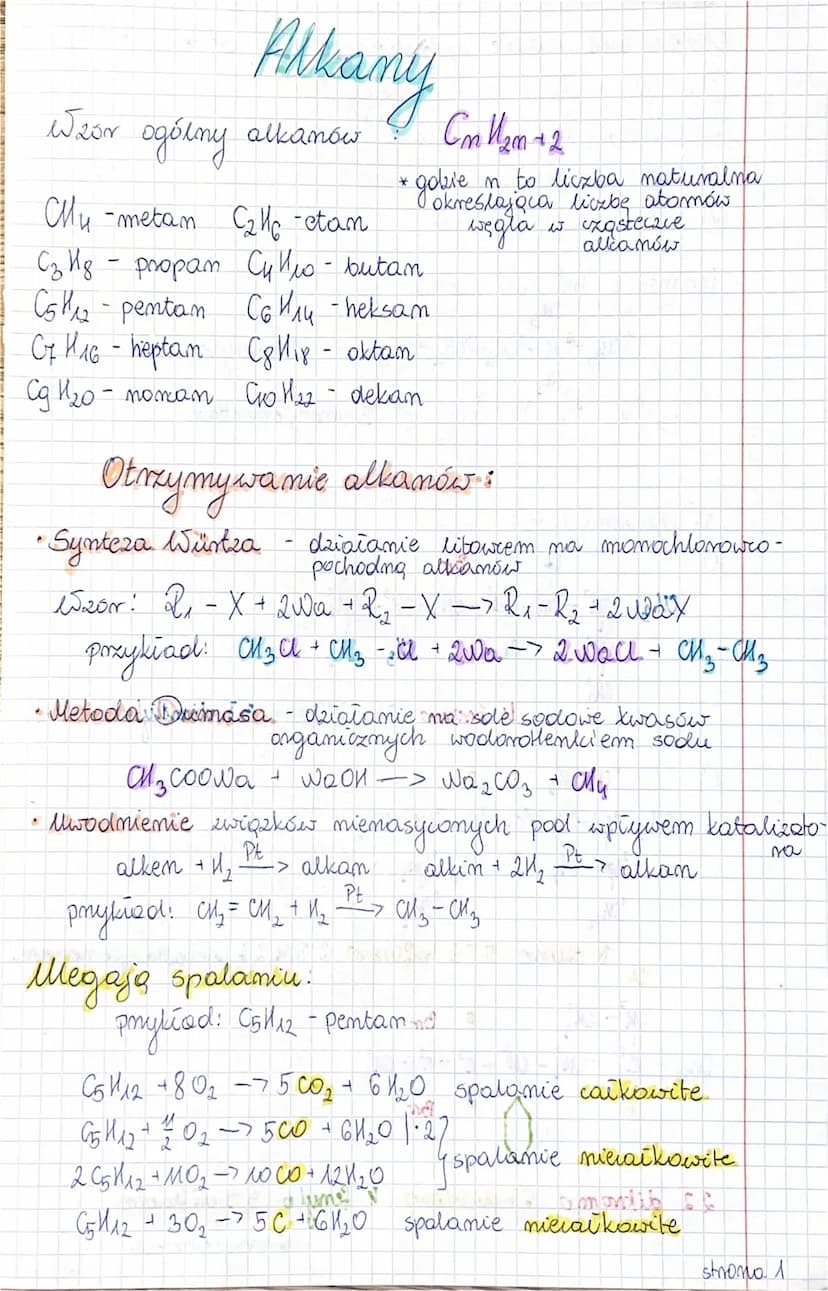 Alkany
Wzór ogólny alkanów : CnH2n+2
* gdzie n to liczba naturalna
określająca liczbę atomów
węgla w cząsteczce
alkanów
CH4 - metan C2H6 - etan
C3H8 - propan C4H10 - butan
C5H12 - pentan C6H14 - heksan
C7H16 - heptan C8H18 - oktan
C9H20 - nonan C10H22 - dekan
Otrzymywanie alkanów:
• Synteza Würtza - działanie litowcem na monochlorowco-
pochodną alkanów
Wzór: R1 - X + 2Na + R2 - X → R1 - R2 + 2NaX
przykład: CH3Cl + CH3 - Cl + 2Na → 2NaCl + CH3-CH3
• Metoda Dumasa - działanie na sole sodowe kwasów
organicznych wodorotlenkiem sodu
CH3COONa + NaOH → Na2CO3 + CH4
• Uwodnienie związków nienasyconych pod wpływem katalizato-
ra
alken + H2 Pt→ alkan alkin + 2H2 Pt→ alkan
przykład: CH2 = CH2 + H2 Pt→ CH3 - CH3
Ulegają spalaniu:
przykład: C5H12 - pentan
C5H12 + 8O2 → 5CO2 + 6H2O spalanie całkowite
C5H12 + 11/2 O2 → 5CO + 6H2O |·2
2C5H12 + 11O2 → 10CO + 12H2O } spalanie niecałkowite
C5H12 + 3O2 → 5C + 6H2O spalanie niecałkowite
strona 1